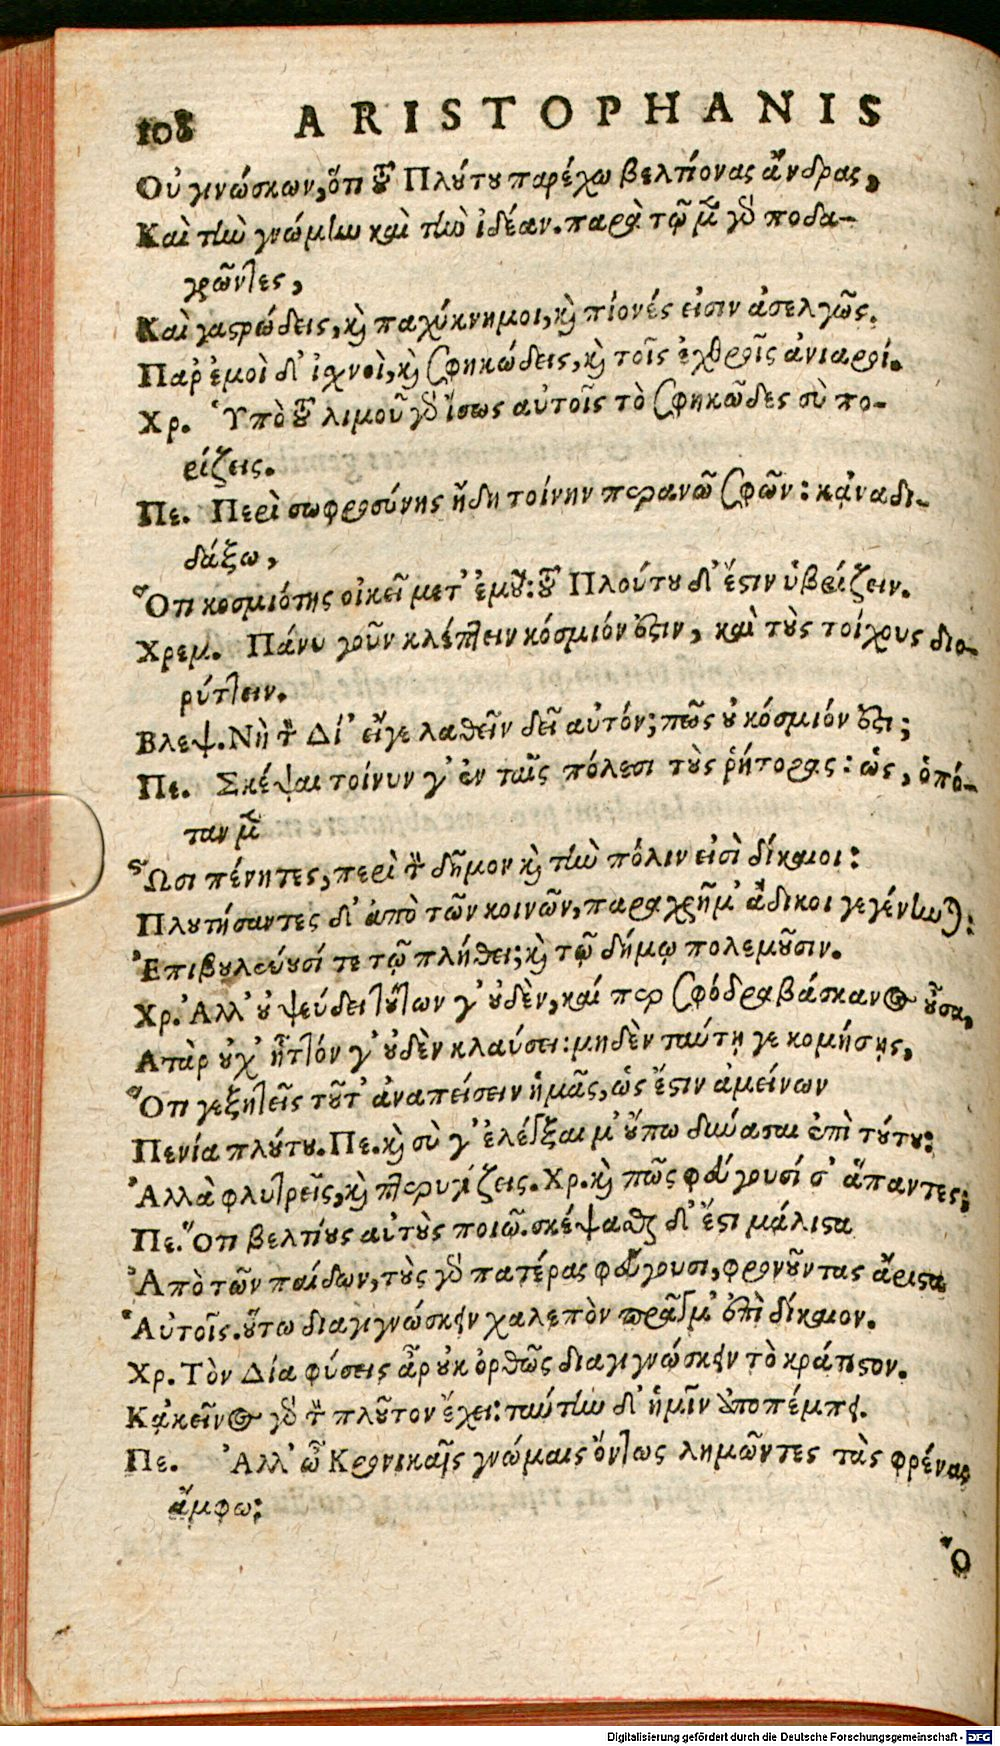 108 ARISTOPHANIS
Οὐ γινώσκων, ὅτι τοῦ Πλύτυ παρέχω βελτίονας ἄνδρας,
Καὶ τὴν γνώμην καὶ τὴν ἰδέαν. παρὰ τῷ μὲν γὰρ ποδα-
γρῶντες,
Καὶ γαστρώδεις, καὶ παχύκνημοι, καὶ πίονές εἰσιν ἀσελγῶς.
Παρ' ἐμοὶ δ' ἰχνοὶ, καὶ σφηκώδεις, καὶ τοῖς ἐχθροῖς ἀνιαροί.
Χρ. Ὑπὸ τοῦ λιμοῦ γὰρ ἴσως αὐτοῖς τὸ σφηκῶδες σὺ πο-
ρίζεις.
Πε. Περὶ σωφροσύνης ἤδη τοίνην περανῶ σφῶν: κᾀναδι-
δάξω,
Ὅτι κοσμιότης οἰκεῖ μετ' ἐμοῦ: τοῦ Πλούτου δ' ἔστιν ὑβρίζειν.
Χρεμ. Πάνυ γοῦν κλέπτειν κόσμιόν ἐστιν, καὶ τοὺς τοίχους διο-
ρύττειν.
Βλεψ. Νὴ τὸν Δί' εἴγε λαθεῖν δεῖ αὐτόν; πῶς οὐ κόσμιόν ἐστι;
Πε. Σκέψαι τοίνυν γ' ἐν ταῖς πόλεσι τοὺς ῥήτορας: ὡς, ὁπό-
ταν μὲν
Ὦσι πένητες, περὶ τὸν δῆμον καὶ τὴν πόλιν εἰσὶ δίκαιοι:
Πλουτήσαντες δ' ἀπὸ τῶν κοινῶν, παραχρῆμ' ἄδικοι γεγένηνται:
Ἐπιβουλεύουσί τε τῷ πλήθει; καὶ τῷ δήμῳ πολεμοῦσιν.
Χρ. Ἀλλ' οὐ ψεύδει τούτων γ' οὐδὲν, καί περ σφόδρα βάσκανος οὖσα,
Ἀτὰρ οὐχ' ἧττόν γ' οὐδὲν κλαύσει: μηδὲν ταύτῃ γε κομήσῃς,
Ὅτι γεζητεῖς τοῦτ' ἀναπείσειν ἡμᾶς, ὡς ἔστιν ἀμείνων
Πενία πλούτου. Πε. καὶ σὺ γ' ἐλέγξαι μ' οὔπω δύνασαι ἐπὶ τούτου:
Ἀλλὰ φλυαρεῖς, καὶ πτερυγίζεις. Χρ. καὶ πῶς φεύγουσί σ' ἅπαντες;
Πε. Ὅτι βελτίους αὐτοὺς ποιῶ. σκέψασθαι δ' ἔστι μάλιστα
Ἀπὸ τῶν παίδων, τοὺς γὰρ πατέρας φεύγουσι, φρονοῦντας ἄριστα
Αὐτοῖς. οὕτω διαγιγνώσκειν χαλεπὸν πρᾶγμ' ἐστὶ δίκαιον.
Χρ. Τὸν Δία φύσεις ἆρ οὐκ ὀρθῶς διαγιγνώσκειν τὸ κράτιστον.
Κᾀκεῖνος γὰρ τὸν πλοῦτον ἔχει: ταύτην δ' ἡμῖν ἀποπέμπει.
Πε. Ἀλλ' ὦ Κρονικαῖς γνώμαις ὄντως λημῶντες τὰς φρένας
ἄμφω:
Ὁ
Digitalisierung gefördert durch die Deutsche Forschungsgemeinschaft - DFG